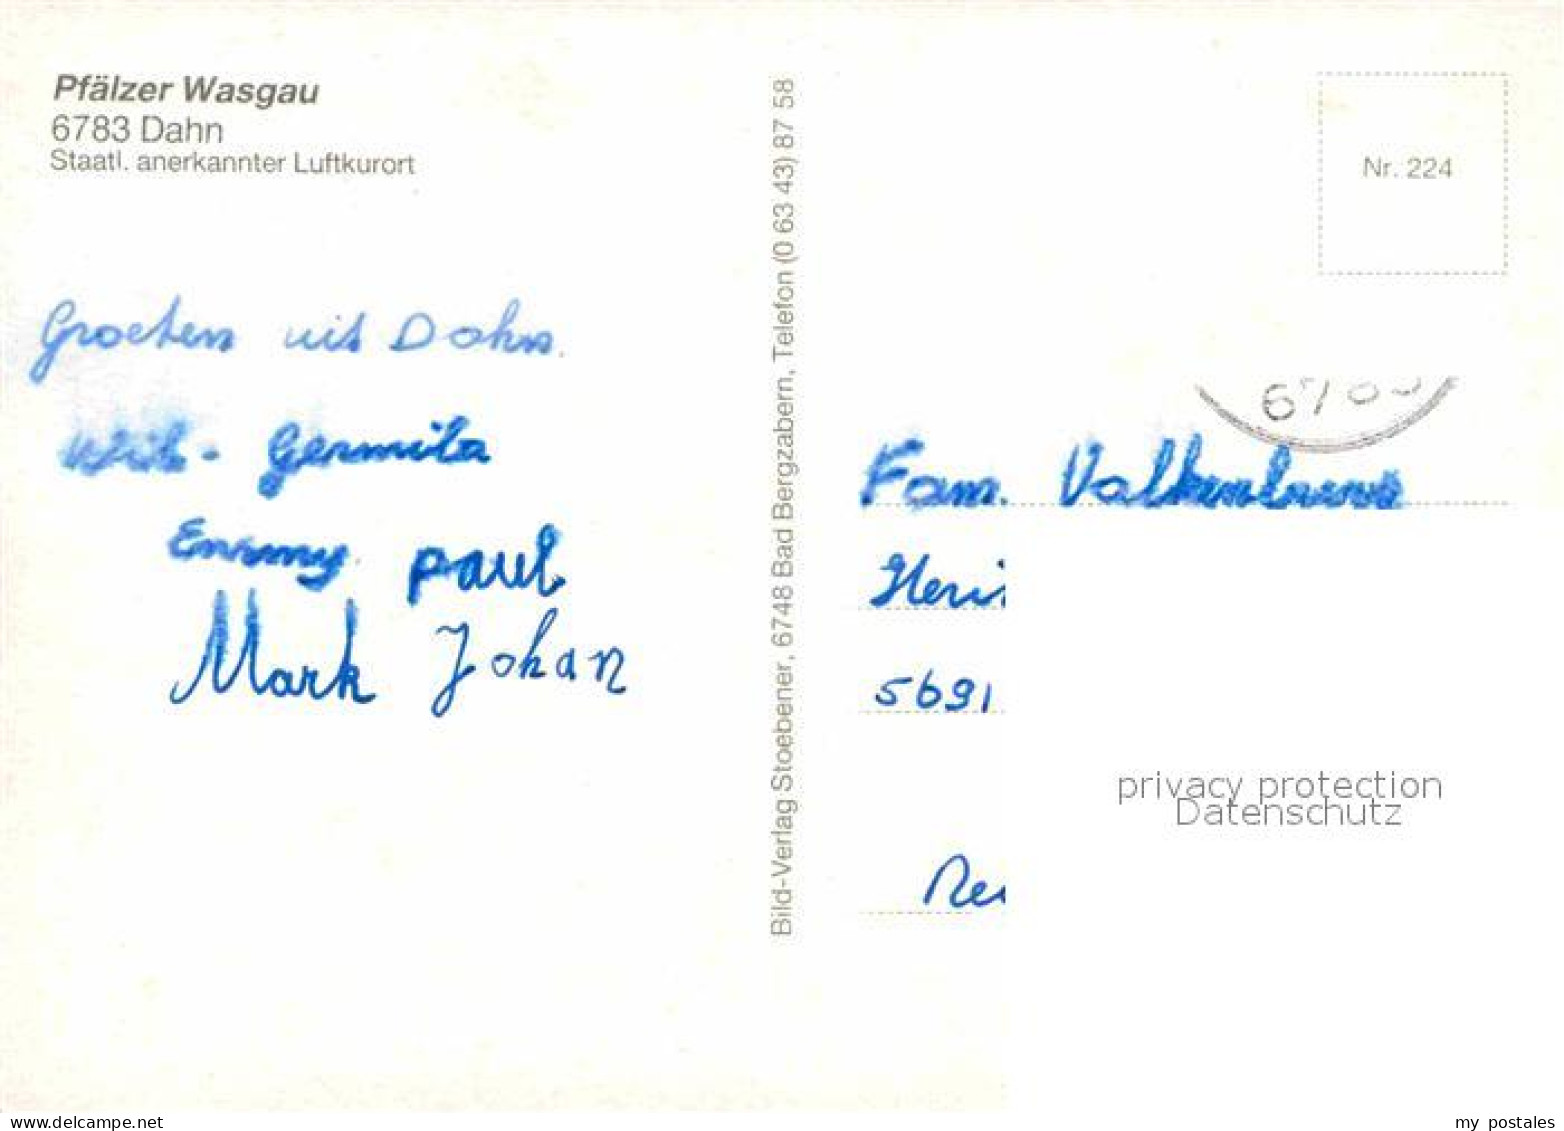 Pfälzer Wasgau
6783 Dahn
Staatl. anerkannter Luftkurort
Groeten uit Dahn.
Germita
Emmy. paul
Mark Johan
Bild-Verlag Stoebener, 6748 Bad Bergzabern, Telefon (0 63 43) 87 58
Nr. 224
Fam.
5691
privacy protection
Datenschutz
www.delcampe.net
my_postales